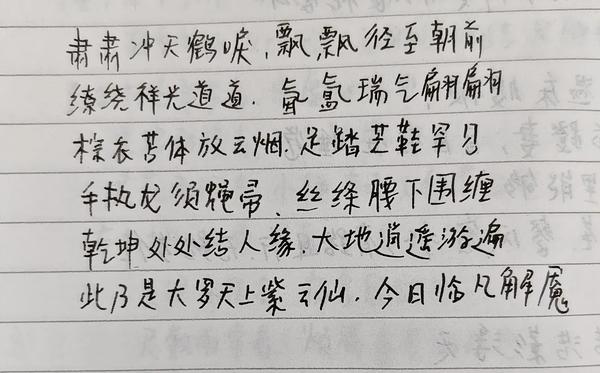 肃肃冲天鹤唳,飘飘径至朝前
缭绕祥光道道.氤氲瑞气翩翩
棕衣苫体放云烟.足踏芒鞋罕见
手执龙须蝇帚、丝绦腰下围缠
乾坤处处结人缘.大地逍遥游遍
此乃是大罗天上紫云仙.今日临凡解魇